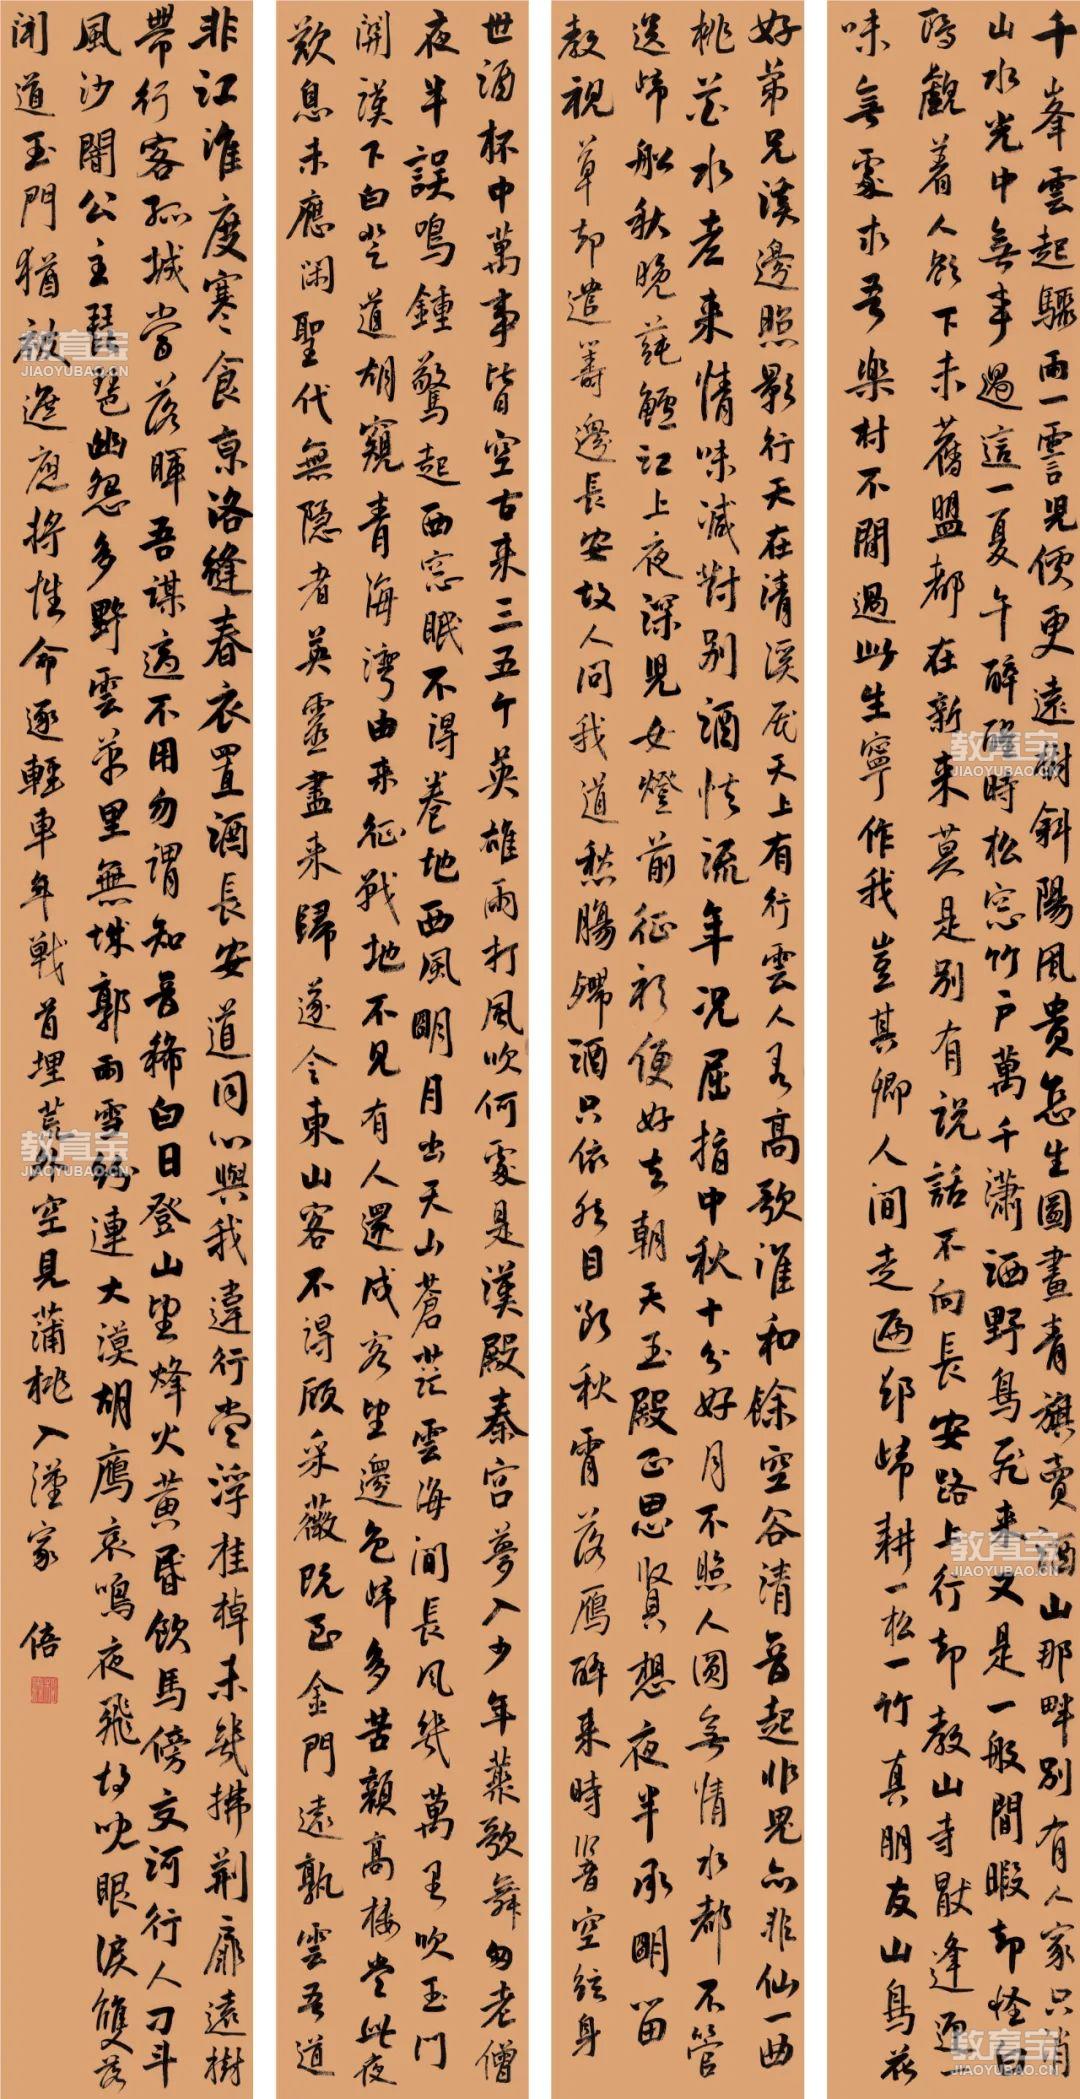 千峯雲起驟雨一霎兒價更遠樹斜陽風景怎生圖畫青旗賣酒山那畔別有人家只消
山水光中無事過這一夏午醉醒時松窓竹戶萬千瀟洒野鳥飛來又是一般閒暇却怪白
鷗覷着人欲下未舊盟都在新來莫是別有說話不向長安路上行却教山寺厭逢迎
味無處求吾樂材不間過此生寧作我豈其卿人間走遍却歸耕一松一竹真朋友山鳥花
好弟兄溪邊照影行天在清溪底天上有行雲人若高歌誰和餘空谷清音起非鬼亦非仙一曲
桃花水老來情味減對別酒怯流年況屈指中秋十分好月不照人圓無情水都不管
送歸船秋晚蓴鱸江上夜深兒女燈前征衫便好去朝天玉殿正思賢想夜半承明留
教視草却遣籌邊長安故人問我道愁腸殢酒只依然目斷秋霄落鴈醉來時響空弦身
世酒杯中萬事皆空古來三五个英雄雨打風吹何處是漢殿秦宮夢入少年叢歌舞匆老僧
夜半誤鳴鍾驚起西窓眠不得卷地西風明月出天山蒼茫雲海間長風幾萬里吹玉門
關漢下白登道胡窺青海灣由來征戰地不見有人還戍客望邊色歸多苦顏高樓當此夜
歎息未應閑聖代無隱者英靈盡來歸遂令東山客不得顧采薇既至金門遠孰雲吾道
非江淮度寒食京洛縫春衣置酒長安道同心與我違行當浮桂棹未幾拂荊扉遠樹
帶行客孤城當落暉吾謀適不用勿謂知音稀白日登山望烽火黃昏飲馬傍交河行人刁斗
風沙闇公主琵琶幽怨多野雲萬里無城郭雨雪紛連大漠胡鴈哀鳴夜飛胡兒眼淚雙落
聞道玉門猶被遮應將性命逐輕車年戰首埋荒外空見蒲桃入漢家 倍
教育宝
JIAOYUBAO.CN